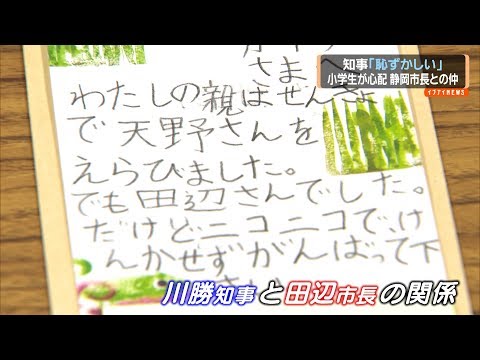 知事「恥ずかしい」
小学生が心配 静岡市長との仲
イブアイNEWS
さま
わたしの親はせんきょ
で天野さんを
えらびました。
でも田辺さんでした。
だけどニコニコで、け
んかせずがんばって下
さい
川勝知事と田辺市長の関係